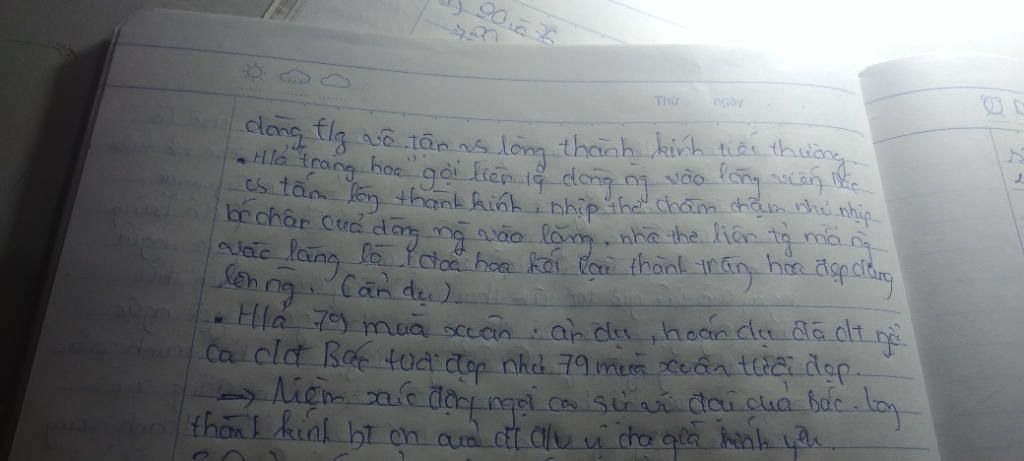 2) 20 và 36
⇒ 20
Thứ ngày
dòng tlg vô tận vs lòng thành kính tiếc thương.
• H/ả "tràng hoa" gợi liên tg dòng ng vào lăng viếng Bác
cs tấm lòng thành kính, nhịp thơ chầm chậm như nhịp
bc chân của dòng ng vào lăng, nhà thơ liên tg mỗi ng
vào lăng là 1 đoá hoa kết lại thành tràng hoa đẹp dâng
lên ng. (ẩn dụ)
• H/ả 79 mùa xuân: ẩn dụ, hoán dụ đã
ca cđ Bác tươi đẹp như 79 mùa xuân tươi đẹp.
→ Niềm xúc động ngợi ca sự vĩ đại của Bác. lòng
thành kính của vị cha già kính yêu